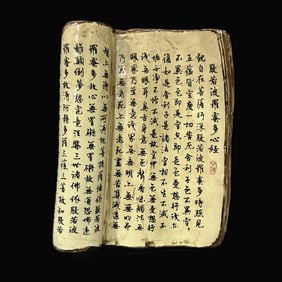 般若波羅蜜多心經
觀自在菩薩行深般若波羅蜜多時照見
五蘊皆空度一切苦厄舍利子色不異空空
不異色色即是空空即是色受想行識亦
復如是舍利子是諸法空相不生不滅不
垢不淨不增不減是故空中無色無受想行
識無眼耳鼻舌身意無色聲香味觸法無
眼界乃至無意識界無無明亦無無明盡
乃至無老死亦無老死盡無苦集滅道無
智亦無得以無所得故菩提薩埵依般若波
羅蜜多故心無罣礙無罣礙故無有恐怖遠
離顛倒夢想究竟涅槃三世諸佛依般若波
羅蜜多故得阿耨多羅三藐三菩提故知般若